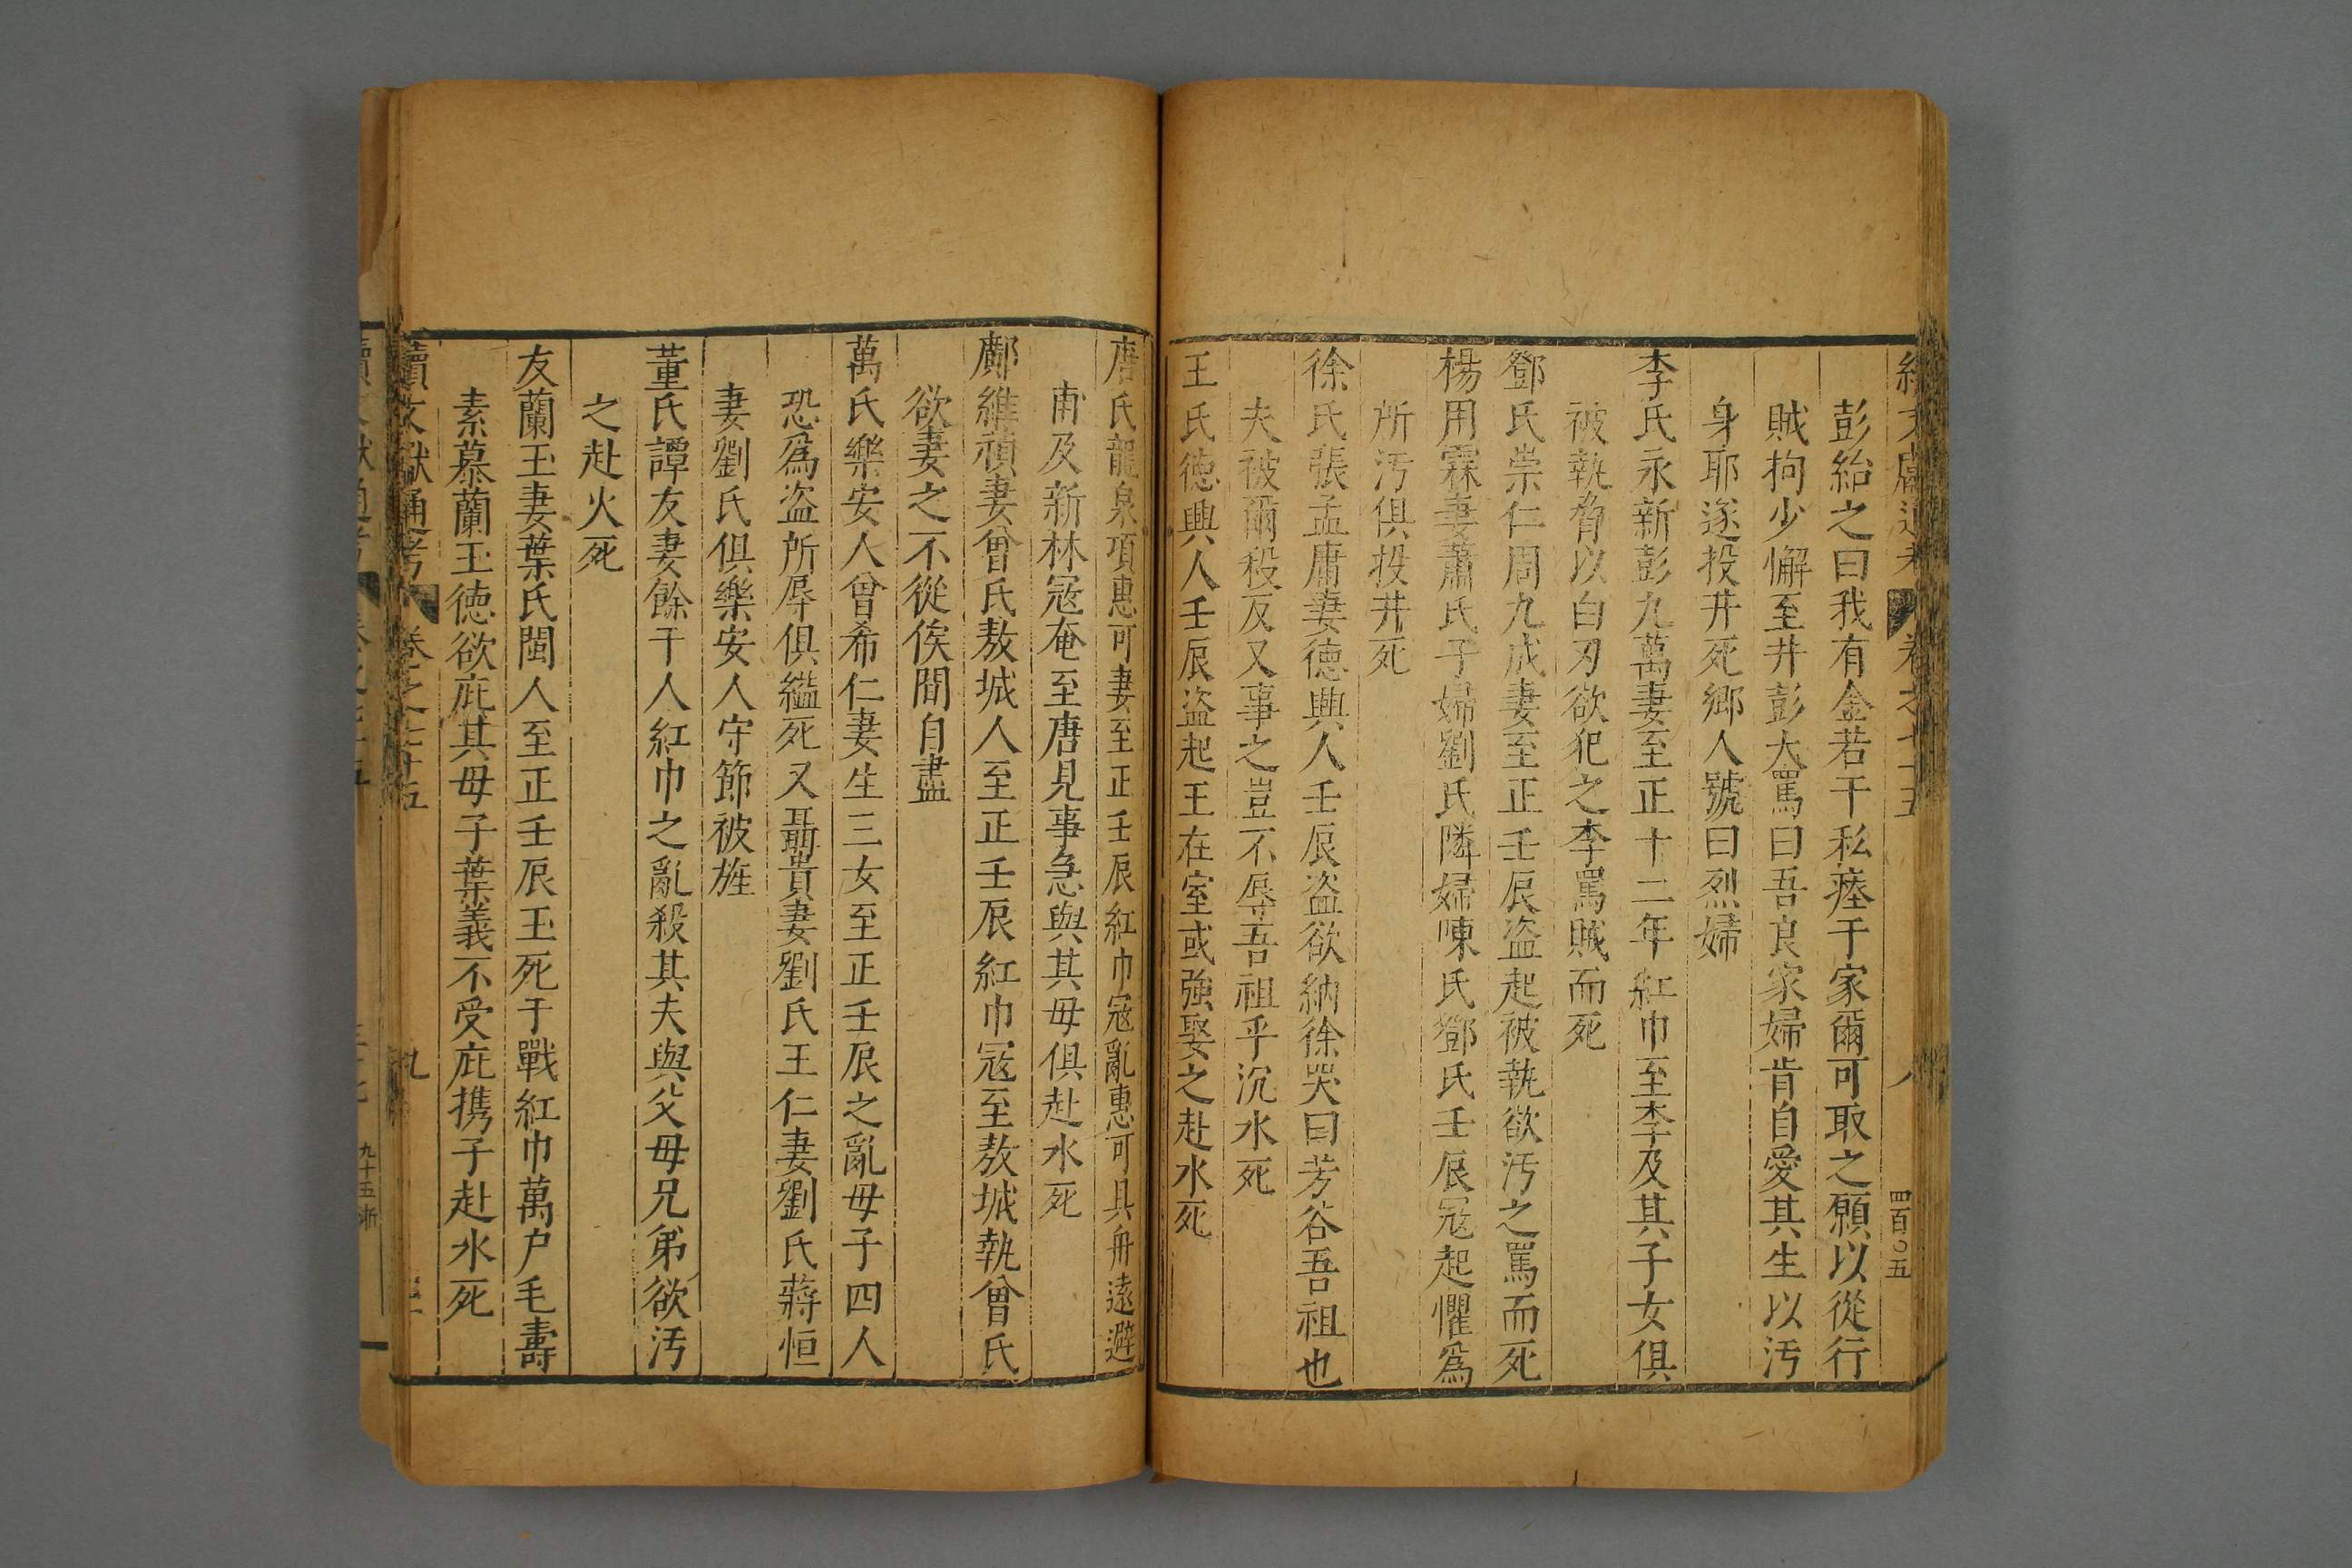 彭紿之曰我有金若干私瘞于家爾可取之願以從行
賊拘少懈至井彭大罵曰吾良家婦肯自愛其生以汚
身耶逐投井死鄉人號曰烈婦
李氏永新彭九萬妻至正十二年紅巾至李及其子女俱
被執脅以白刃欲犯之李罵賊而死
鄧氏崇仁周九成妻至正壬辰盜起被執欲汚之罵而死
楊用霖妻蕭氏子婦劉氏隣婦陳氏鄧氏壬辰冦起懼爲
所汚俱投井死
徐氏張孟庸妻德興人壬辰盜欲納徐哭曰芳谷吾祖也
夫被爾殺反又事之豈不辱吾祖乎沉水死
王氏德興人壬辰盜起王在室或強娶之赴水死
唐氏龍泉項惠可妻至正壬辰紅巾冦亂惠可具舟遠避
甫及新林冦奄至唐見事急與其母俱赴水死
鄺維禎妻曾氏敖城人至正壬辰紅巾冦至敖城執曾氏
欲妻之不從俟間自盡
萬氏樂安人曾希仁妻生三女至正壬辰之亂母子四人
恐爲盜所辱俱縊死又聶貴妻劉氏王仁妻劉氏蔣恒
妻劉氏俱樂安人守節被旌
董氏譚友妻餘干人紅巾之亂殺其夫與父母兄弟欲汚
之赴火死
友蘭王妻葉氏閩人至正壬辰玉死于戰紅巾萬户毛壽
素慕蘭玉德欲庇其母子葉義不受庇携子赴水死
續文獻通考 卷之七十五 九